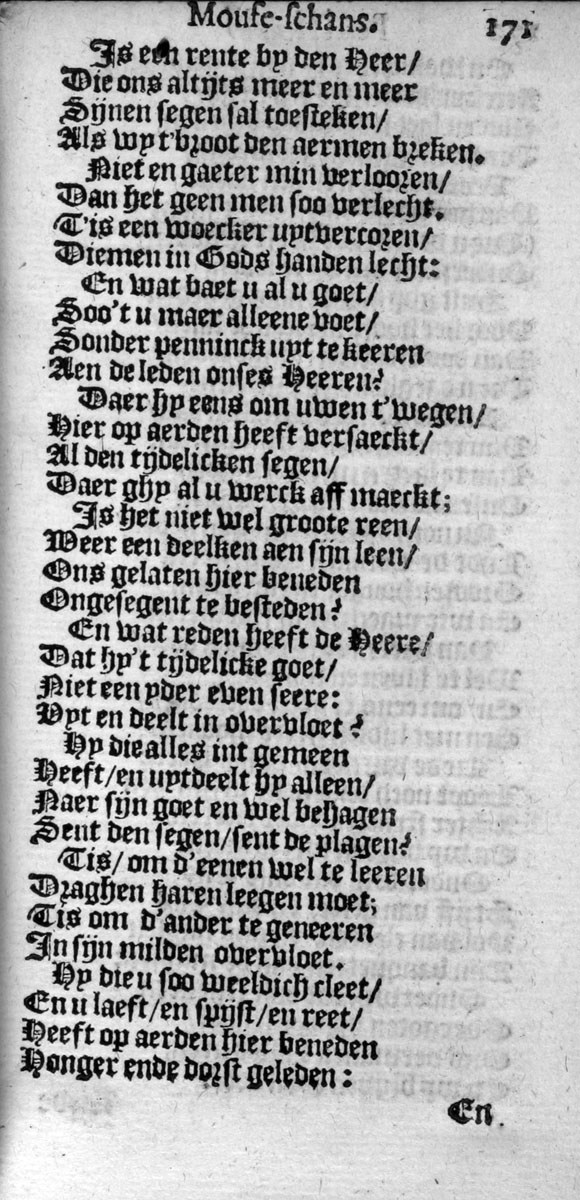 Mouse-schans. 171
Is een rente by den Heer/
Die ons altijts meer en meer
Sijnen segen sal toesteken/
Als wy t'broot den aermen breken.
Niet en gaeter min verlooren/
Dan het geen men soo verlecht.
T'is een woecker uytvercoren/
Diemen in Gods handen lecht:
En wat baet u al u goet/
Soo't u maer alleene voet/
Sonder penninck uyt te keeren
Aen de leden onses Heeren?
Daer hy eens om uwen t'wegen/
Hier op aerden heeft versaeckt/
Al den tijdelicken segen/
Daer ghy al u werck aff maeckt;
Is het niet wel groote reen/
Weer een deelken aen sijn leen/
Ons gelaten hier beneden
Ongesegent te besteden?
En wat reden heeft de Heere/
Dat hy't tijdelicke goet/
Niet een yder even seere:
Uyt en deelt in overvloet?
Hy die alles int gemeen
Heeft/en uytdeelt hy alleen/
Naer sijn goet en wel behagen
Sent den segen/sent de plagen?
Tis/om d'eenen wel te leeren
Draghen haren leegen moet;
Tis om d'ander te generen
In sijn milden overvloet.
Hy die u soo weeldich cleet/
En u laeft/en spijst/en reet/
Heeft op aerden hier beneden
Honger ende dorst geleden:
En